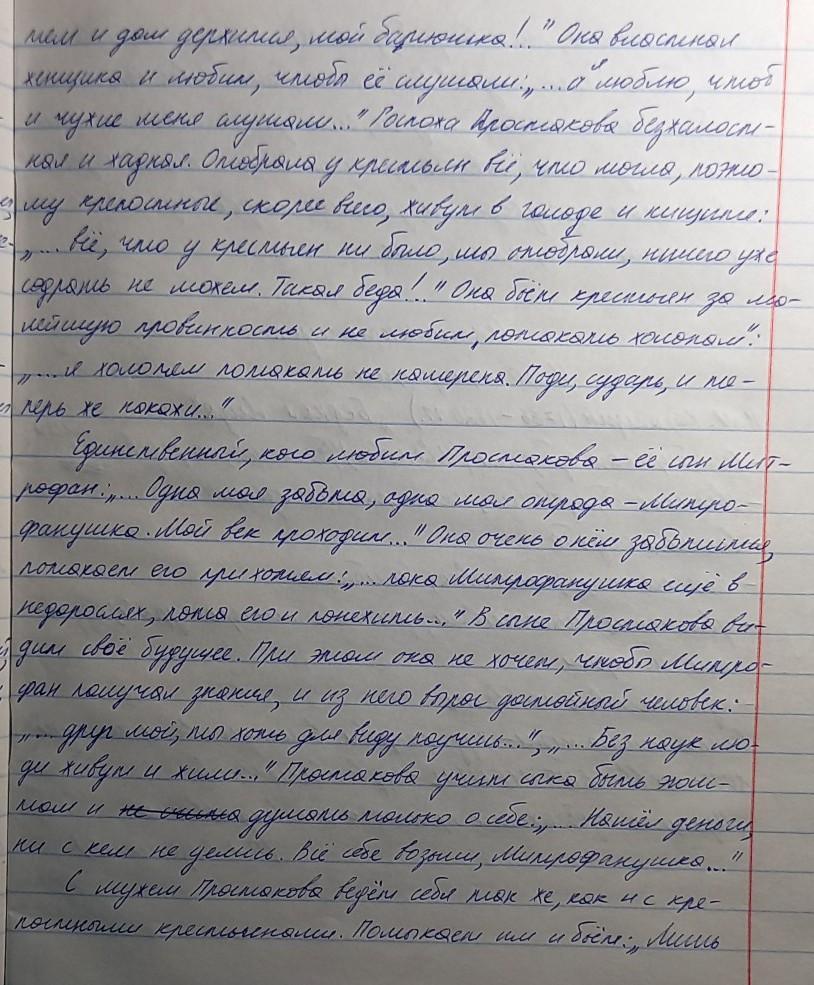 тем и дом держится, мой батюшка!.." Она властная
женщина и любит, чтобы её слушали: „... а я люблю, чтоб
и чужие меня слушали..." Госпожа Простакова безжалост-
ная и жадная. Отобрала у крестьян всё, что могла, поэто-
му крепостные, скорее всего, живут в голоде и нищите:
„... всё, что у крестьян ни было, мы отобрали, ничего уже
содрать не можем. Такая беда!.." Она бьёт крестьян за ма-
лейшую провинность и не любит „потакать холопам":
„... я холопем потакать не намерена. Поди, сударь, и те-
перь же накажи..."
Единственный, кого любит Простакова – её сын Мит-
рофан: „... Одна моя забота, одна моя отрада – Митро-
фанушка. Мой век проходит..." Она очень о нём заботится,
потакает его прихотям: „... пока Митрофанушка ещё в
недорослях, пота его и понежить..." В сыне Простакова ви-
дит своё будущее. При этом она не хочет, чтобы Митро-
фан получал знания, и из него вырос достойный человек:
„... друг мой, ты хоть для виду поучись...", „... Без наук лю-
ди живут и жили..." Простакова учит сына быть эгоис-
том и думать только о себе: „... Нашёл деньги,
ни с кем не делись. Всё себе возьми, Митрофанушка..."
С мужем Простакова ведёт себя так же, как и с кре-
постными крестьянами. Помыкает им и бьёт: „Лишь